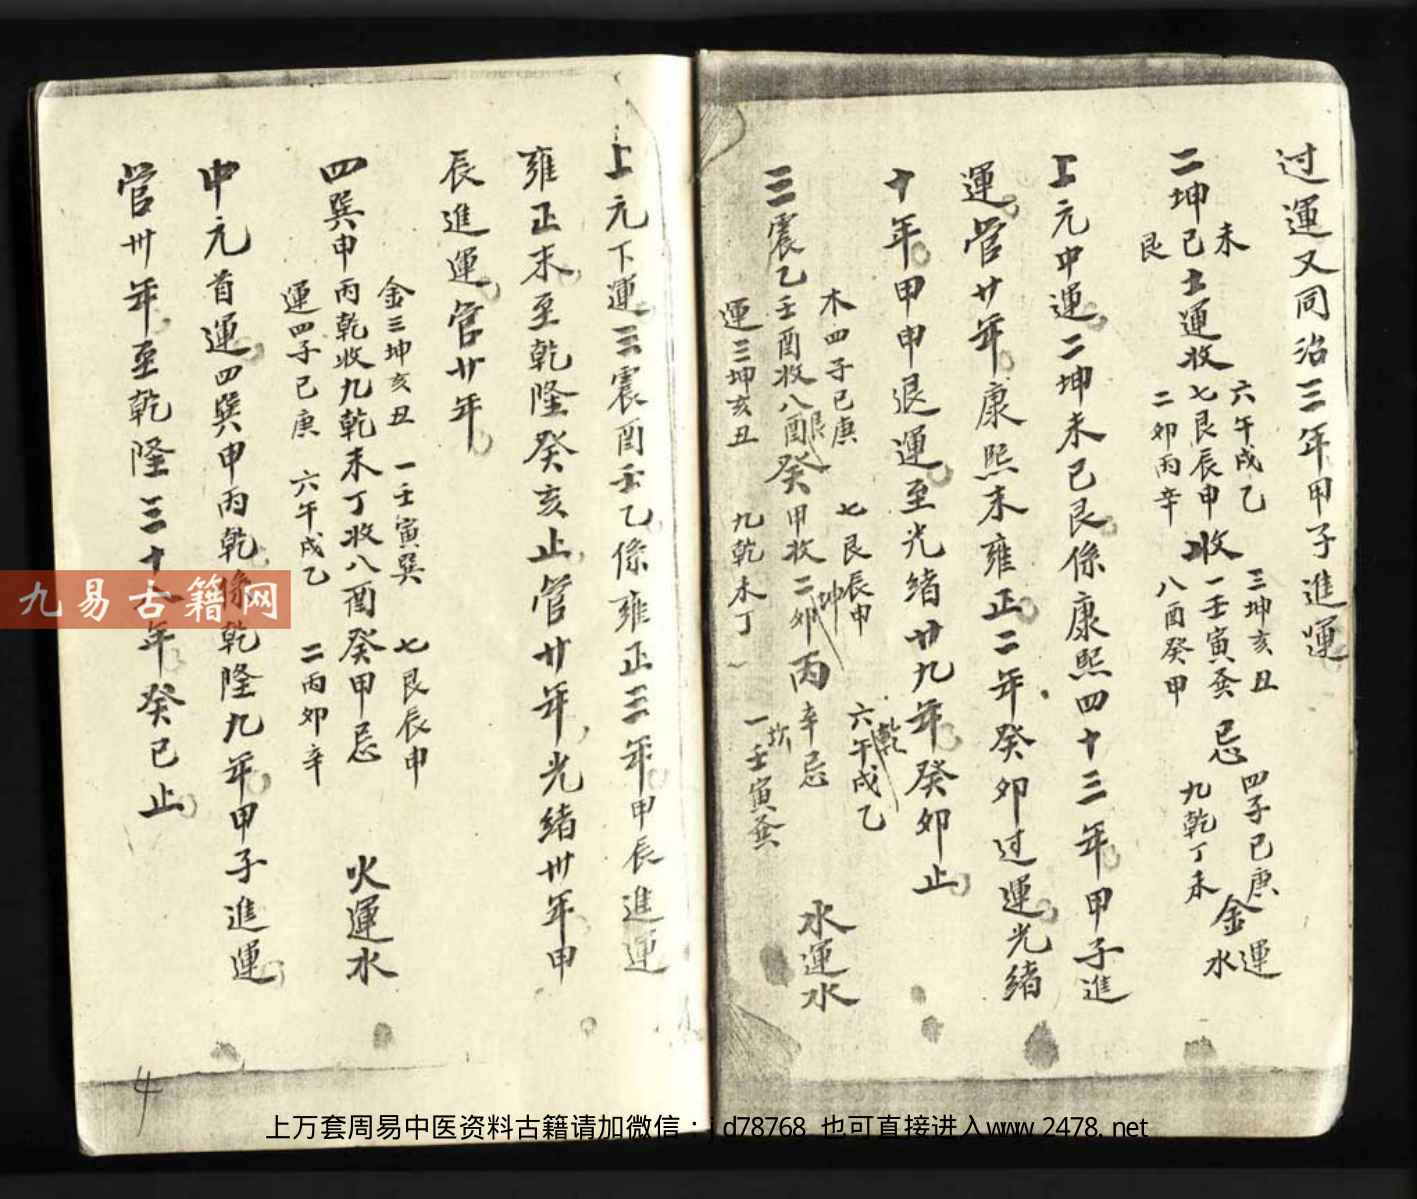 过運又同治三年甲子進運
未
二坤己土運收
艮
六午戌乙
七艮辰申收
二夘丙辛
三坤亥丑
一壬寅巽忌
八酉癸甲
四子己庚金運
九乾丁未水
上元中運二坤未己艮係康熙四十三年甲子進
運管廿年康熙末雍正二年癸夘过運光緒
十年甲申退運至光緒廿九年癸夘止
木四子己庚 七艮辰申 六午戌乙
坤 乾
三震乙壬酉收八酉癸甲收二夘丙辛忌 水運水
艮 坎
運三坤亥丑 九乾未丁 一壬寅巽
上元下運三震酉壬乙係雍正三年甲辰進運
雍正末至乾隆癸亥止管廿年光緒卅年甲
辰進運管廿年
金三坤亥丑 一壬寅巽 七艮辰申
四巽申丙乾收九乾未丁收八酉癸甲忌 火運水
運四子己庚 六午戌乙 二丙夘辛
中元首運四巽申丙乾係乾隆九年甲子進運
管卅年至乾隆三十年癸巳止
4
九易古籍网
上万套周易中医资料古籍请加微信：jd78768 也可直接进入www.2478.net